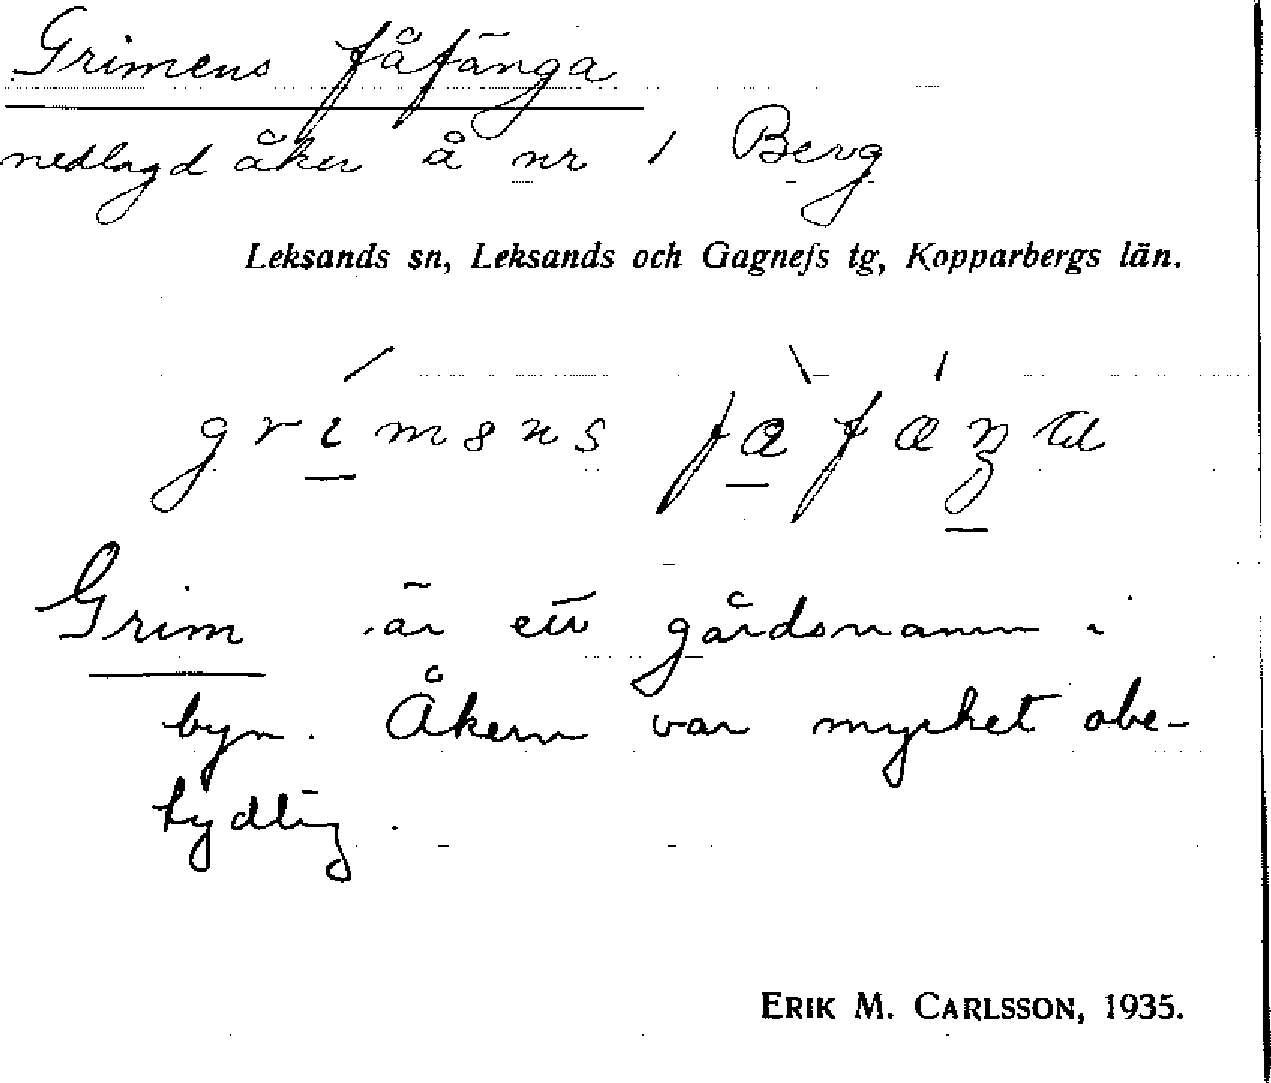 Grimens fåfänga
nedlagd åker å nr 1 Berg
Leksands sn, Leksands och Gagnefs tg, Kopparbergs län.
Grim är ett gårdsnamn i
byn. Åkern var mycket obe-
tydlig.
ERIK M. CARLSSON, 1935.